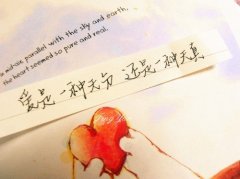 midair, parallel with the sky and earth,
the heart seemed so pure and real.
爱是一种天分 还是一种天真